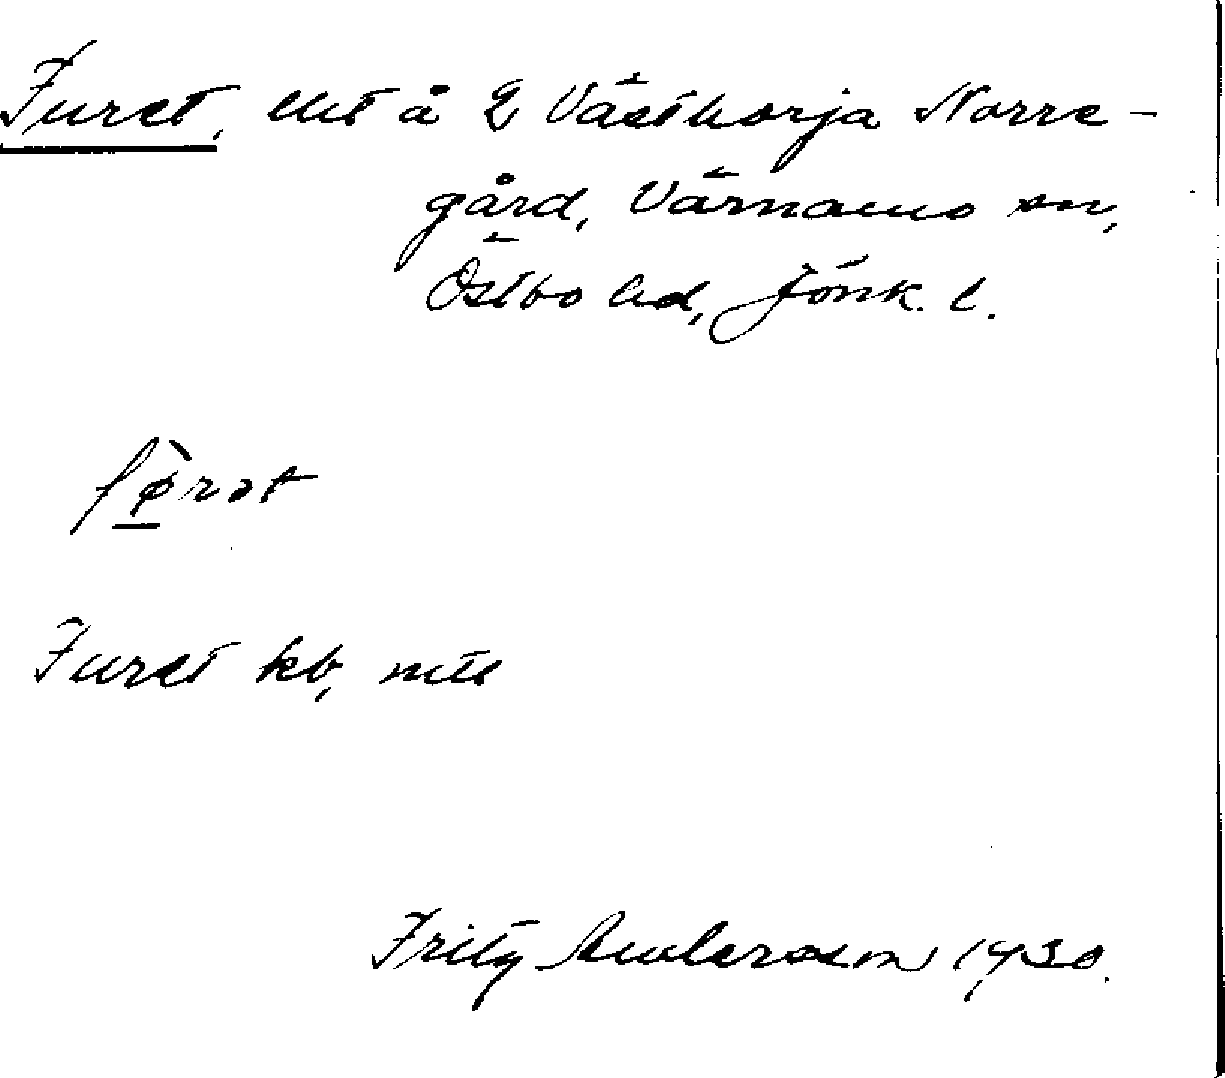 Furet, lht å 2 Västhorja Norre-
gård, Värnamo sn,
Östbo hd, Jönk. l.
fø̀rət
Furet kb, mtl
Fritz Andersson 1930.